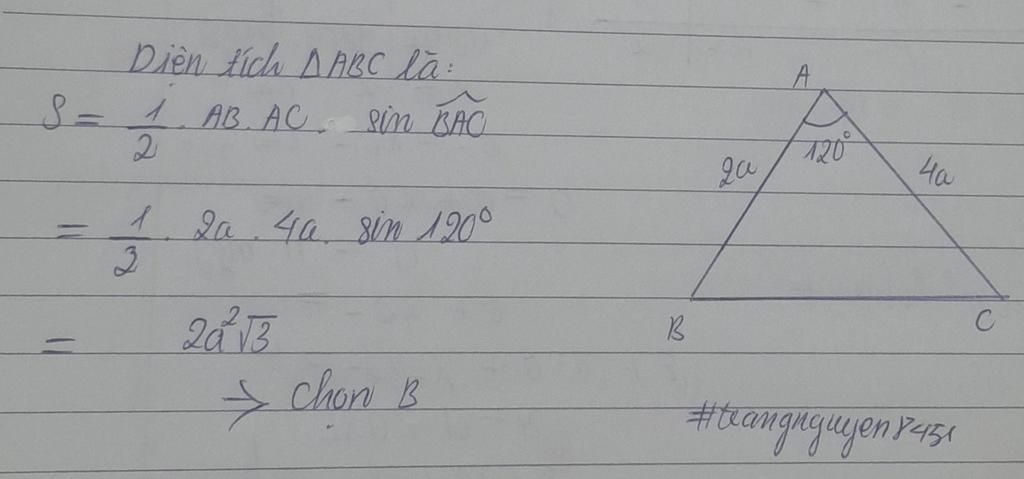 Diện tích ΔABC là:
S = 1/2 . AB . AC . sin \widehat{BAC}
= 1/2 . 2a . 4a . sin 120°
= 2a²√3
→ Chọn B
A
120°
2a
4a
B
C
#trangnguyen8451